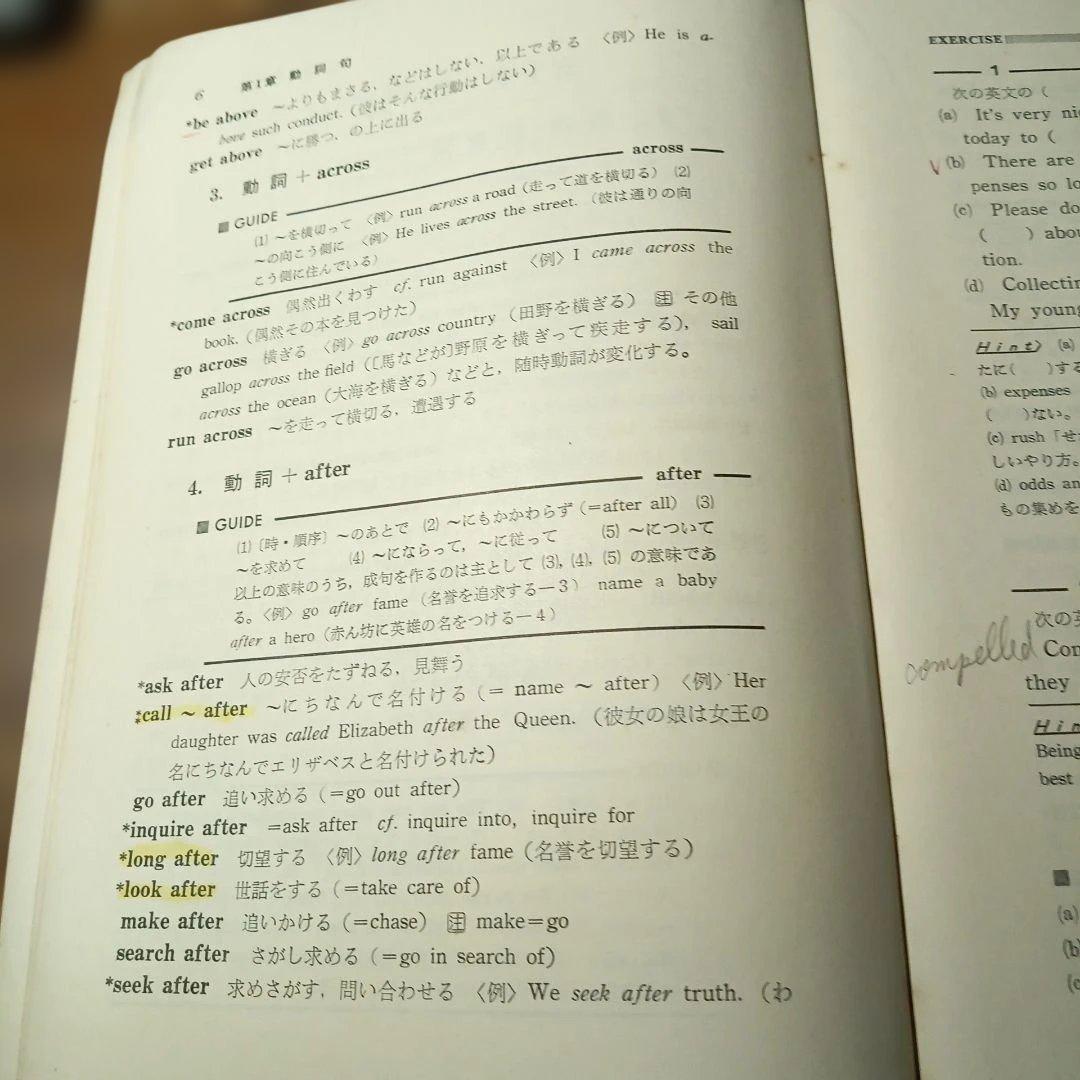 6 第1章 動詞句
*be above ～よりもまさる，などはしない，以上である 〈例〉He is a-
bove such conduct.（彼はそんな行動はしない）
get above ～に勝つ，の上に出る
3. 動詞＋across
■ GUIDE across
(1) ～を横切って 〈例〉run across a road（走って道を横切る） (2)
～の向こう側に 〈例〉He lives across the street.（彼は通りの向
こう側に住んでいる）
*come across 偶然出くわす cf. run against 〈例〉I came across the
book.（偶然その本を見つけた）
go across 横ぎる 〈例〉go across country（田野を横ぎる） 注 その他
gallop across the field（〔馬などが〕野原を横ぎって疾走する），sail
across the ocean（大海を横ぎる）などと，随時動詞が変化する。
run across ～を走って横切る，遭遇する
4. 動詞＋after
■ GUIDE after
(1)〔時・順序〕～のあとで (2) ～にもかかわらず（=after all） (3)
～を求めて (4) ～にならって，～に従って (5) ～について
以上の意味のうち，成句を作るのは主として (3), (4), (5) の意味であ
る。〈例〉go after fame（名誉を追求する—3） name a baby
after a hero（赤ん坊に英雄の名をつける—4）
*ask after 人の安否をたずねる，見舞う
*call ～ after ～にちなんで名付ける（= name ～ after）〈例〉Her
daughter was called Elizabeth after the Queen.（彼女の娘は女王の
名にちなんでエリザベスと名付けられた）
go after 追い求める（=go out after）
*inquire after =ask after cf. inquire into, inquire for
*long after 切望する 〈例〉long after fame（名誉を切望する）
*look after 世話をする（=take care of）
make after 追いかける（=chase） 注 make=go
search after さがし求める（=go in search of）
*seek after 求めさがす，問い合わせる 〈例〉We seek after truth.（わ
EXERCISE
1
次の英文の（
(a) It's very
today to (
(b) There are
penses so
(c) Please
( )
tion.
(d)
My
Hint〉 (a)
たに( )する
(b) expenses
( )ない。
(c) rush
しいやり方。
(d) odds
もの集めを
次の
compelled
they
Being
best
■
(a)
(b)